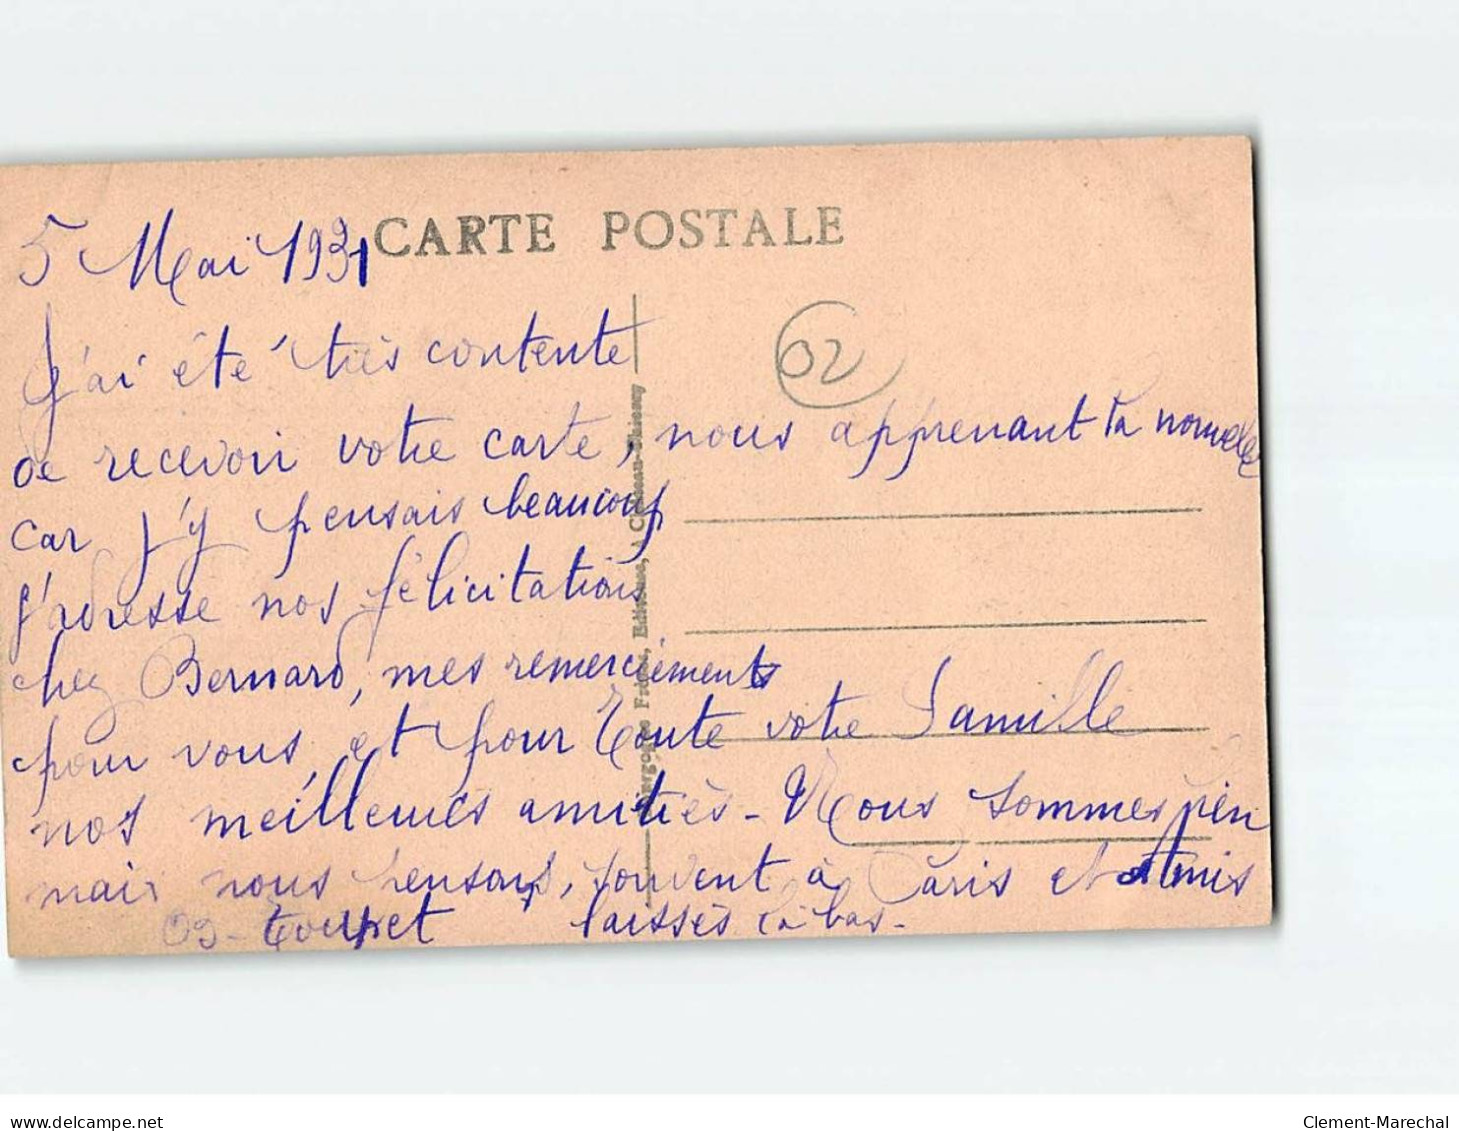 CARTE POSTALE
5 Mai 1931
02
J'ai été très contente
de recevoir votre carte, nous apprenant la nouvelle
car j'y pensais beaucoup
j'adresse nos félicitations
chez Bernard, mes remerciements
pour vous, et pour toute votre famille
nos meilleures amitiés - Nous sommes
mais nous pensons, souvent à Paris et amis
laissés là bas -
Frères, Editeurs, A Château-Thierry
delcampe.net
Clement-Marechal